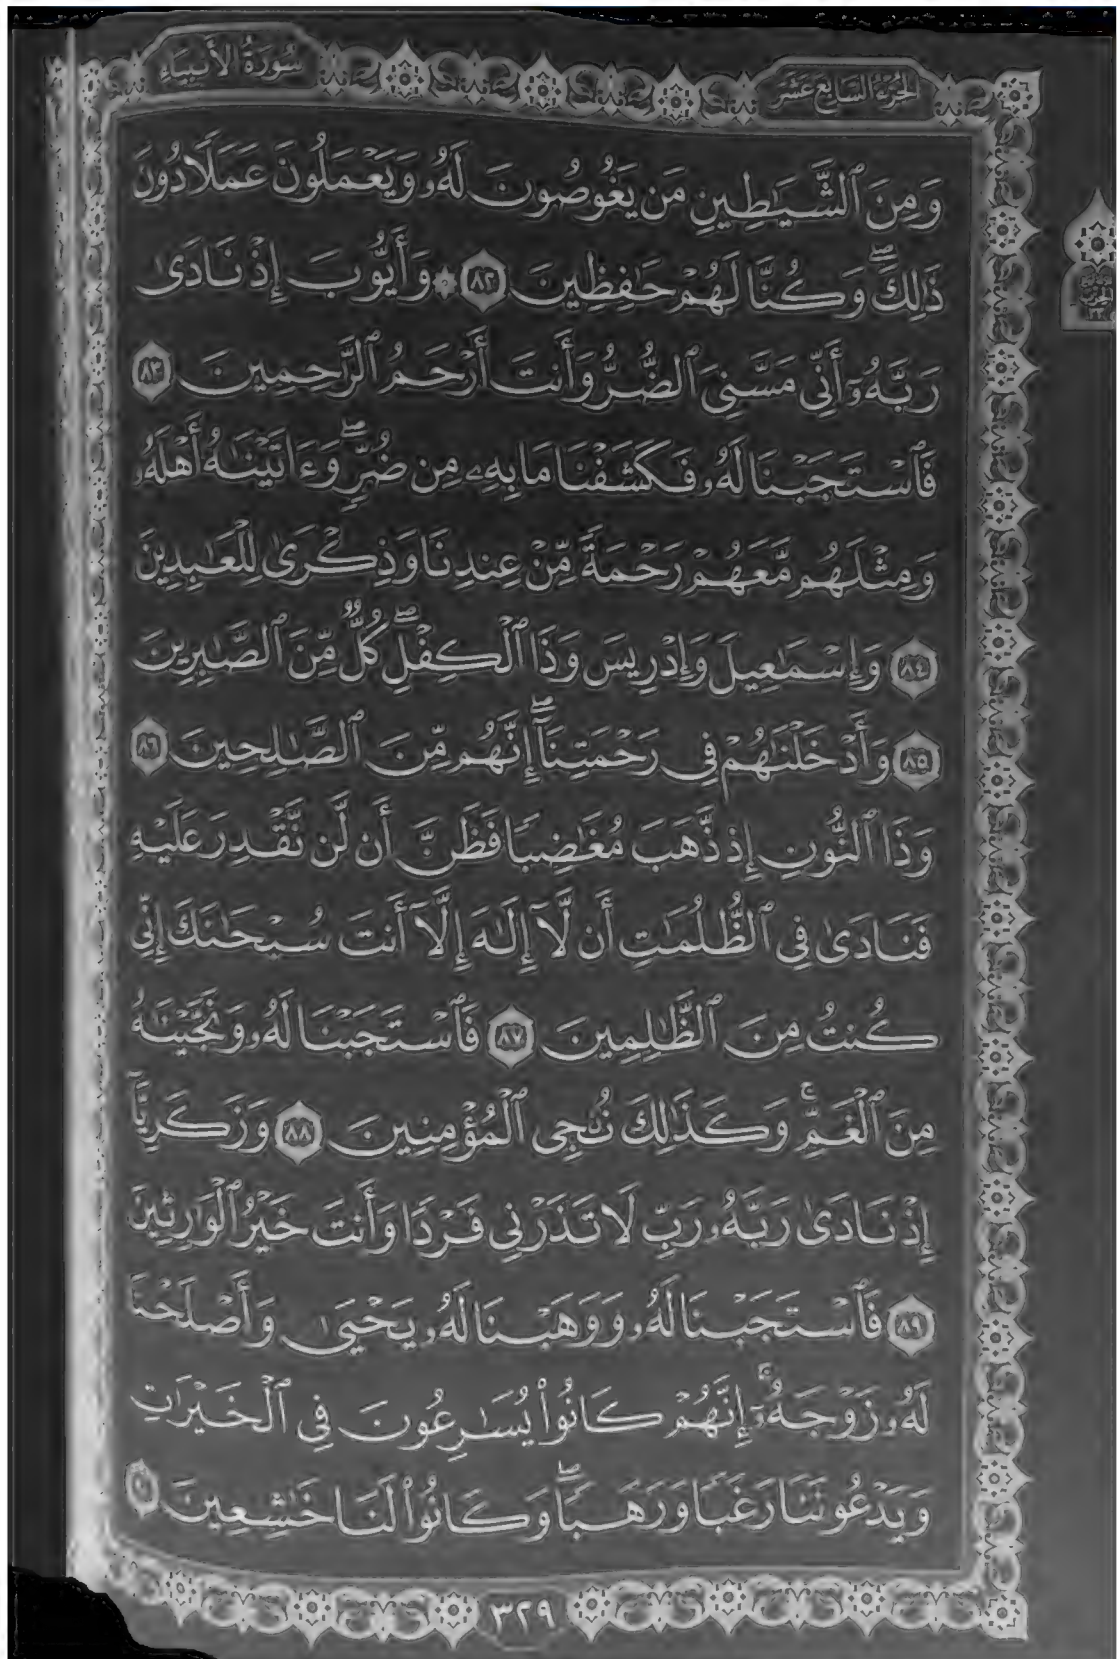 سُورَةُ الأَنبِيَاءِ
الجُزْءُ السَّابِعَ عَشَرَ
وَمِنَ ٱلشَّيَـٰطِينِ مَن يَغُوصُونَ لَهُۥ وَيَعْمَلُونَ عَمَلًا دُونَ
ذَٰلِكَۖ وَكُنَّا لَهُمْ حَـٰفِظِينَ ٨٢ ۞ وَأَيُّوبَ إِذْ نَادَىٰ
رَبَّهُۥٓ أَنِّى مَسَّنِىَ ٱلضُّرُّ وَأَنتَ أَرْحَمُ ٱلرَّٰحِمِينَ ٨٣
فَٱسْتَجَبْنَا لَهُۥ فَكَشَفْنَا مَا بِهِۦ مِن ضُرٍّۖ وَءَاتَيْنَـٰهُ أَهْلَهُۥ
وَمِثْلَهُم مَّعَهُمْ رَحْمَةً مِّنْ عِندِنَا وَذِكْرَىٰ لِلْعَـٰبِدِينَ
٨٤ وَإِسْمَـٰعِيلَ وَإِدْرِيسَ وَذَا ٱلْكِفْلِۖ كُلٌّ مِّنَ ٱلصَّـٰبِرِينَ
٨٥ وَأَدْخَلْنَـٰهُمْ فِى رَحْمَتِنَآۖ إِنَّهُم مِّنَ ٱلصَّـٰلِحِينَ ٨٦
وَذَا ٱلنُّونِ إِذ ذَّهَبَ مُغَـٰضِبًا فَظَنَّ أَن لَّن نَّقْدِرَ عَلَيْهِ
فَنَادَىٰ فِى ٱلظُّلُمَـٰتِ أَن لَّآ إِلَـٰهَ إِلَّآ أَنتَ سُبْحَـٰنَكَ إِنِّى
كُنتُ مِنَ ٱلظَّـٰلِمِينَ ٨٧ فَٱسْتَجَبْنَا لَهُۥ وَنَجَّيْنَـٰهُ
مِنَ ٱلْغَمِّۚ وَكَذَٰلِكَ نُـۨجِى ٱلْمُؤْمِنِينَ ٨٨ وَزَكَرِيَّآ
إِذْ نَادَىٰ رَبَّهُۥ رَبِّ لَا تَذَرْنِى فَرْدًا وَأَنتَ خَيْرُ ٱلْوَٰرِثِينَ
٨٩ فَٱسْتَجَبْنَا لَهُۥ وَوَهَبْنَا لَهُۥ يَحْيَىٰ وَأَصْلَحْنَا
لَهُۥ زَوْجَهُۥٓۚ إِنَّهُمْ كَانُوا۟ يُسَـٰرِعُونَ فِى ٱلْخَيْرَٰتِ
وَيَدْعُونَنَا رَغَبًا وَرَهَبًاۖ وَكَانُوا۟ لَنَا خَـٰشِعِينَ ٩٠
٣٢٩